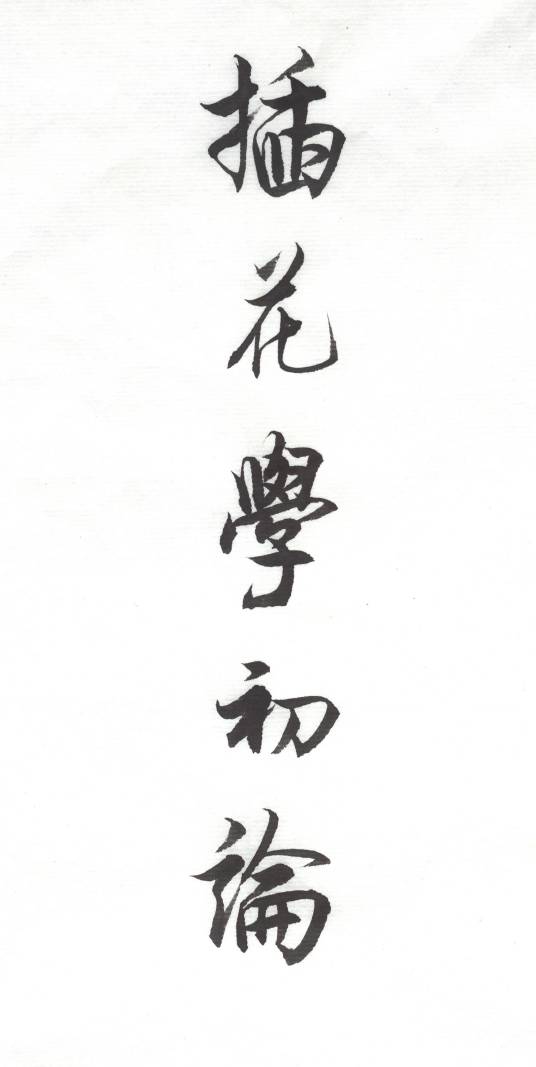 插花學初論